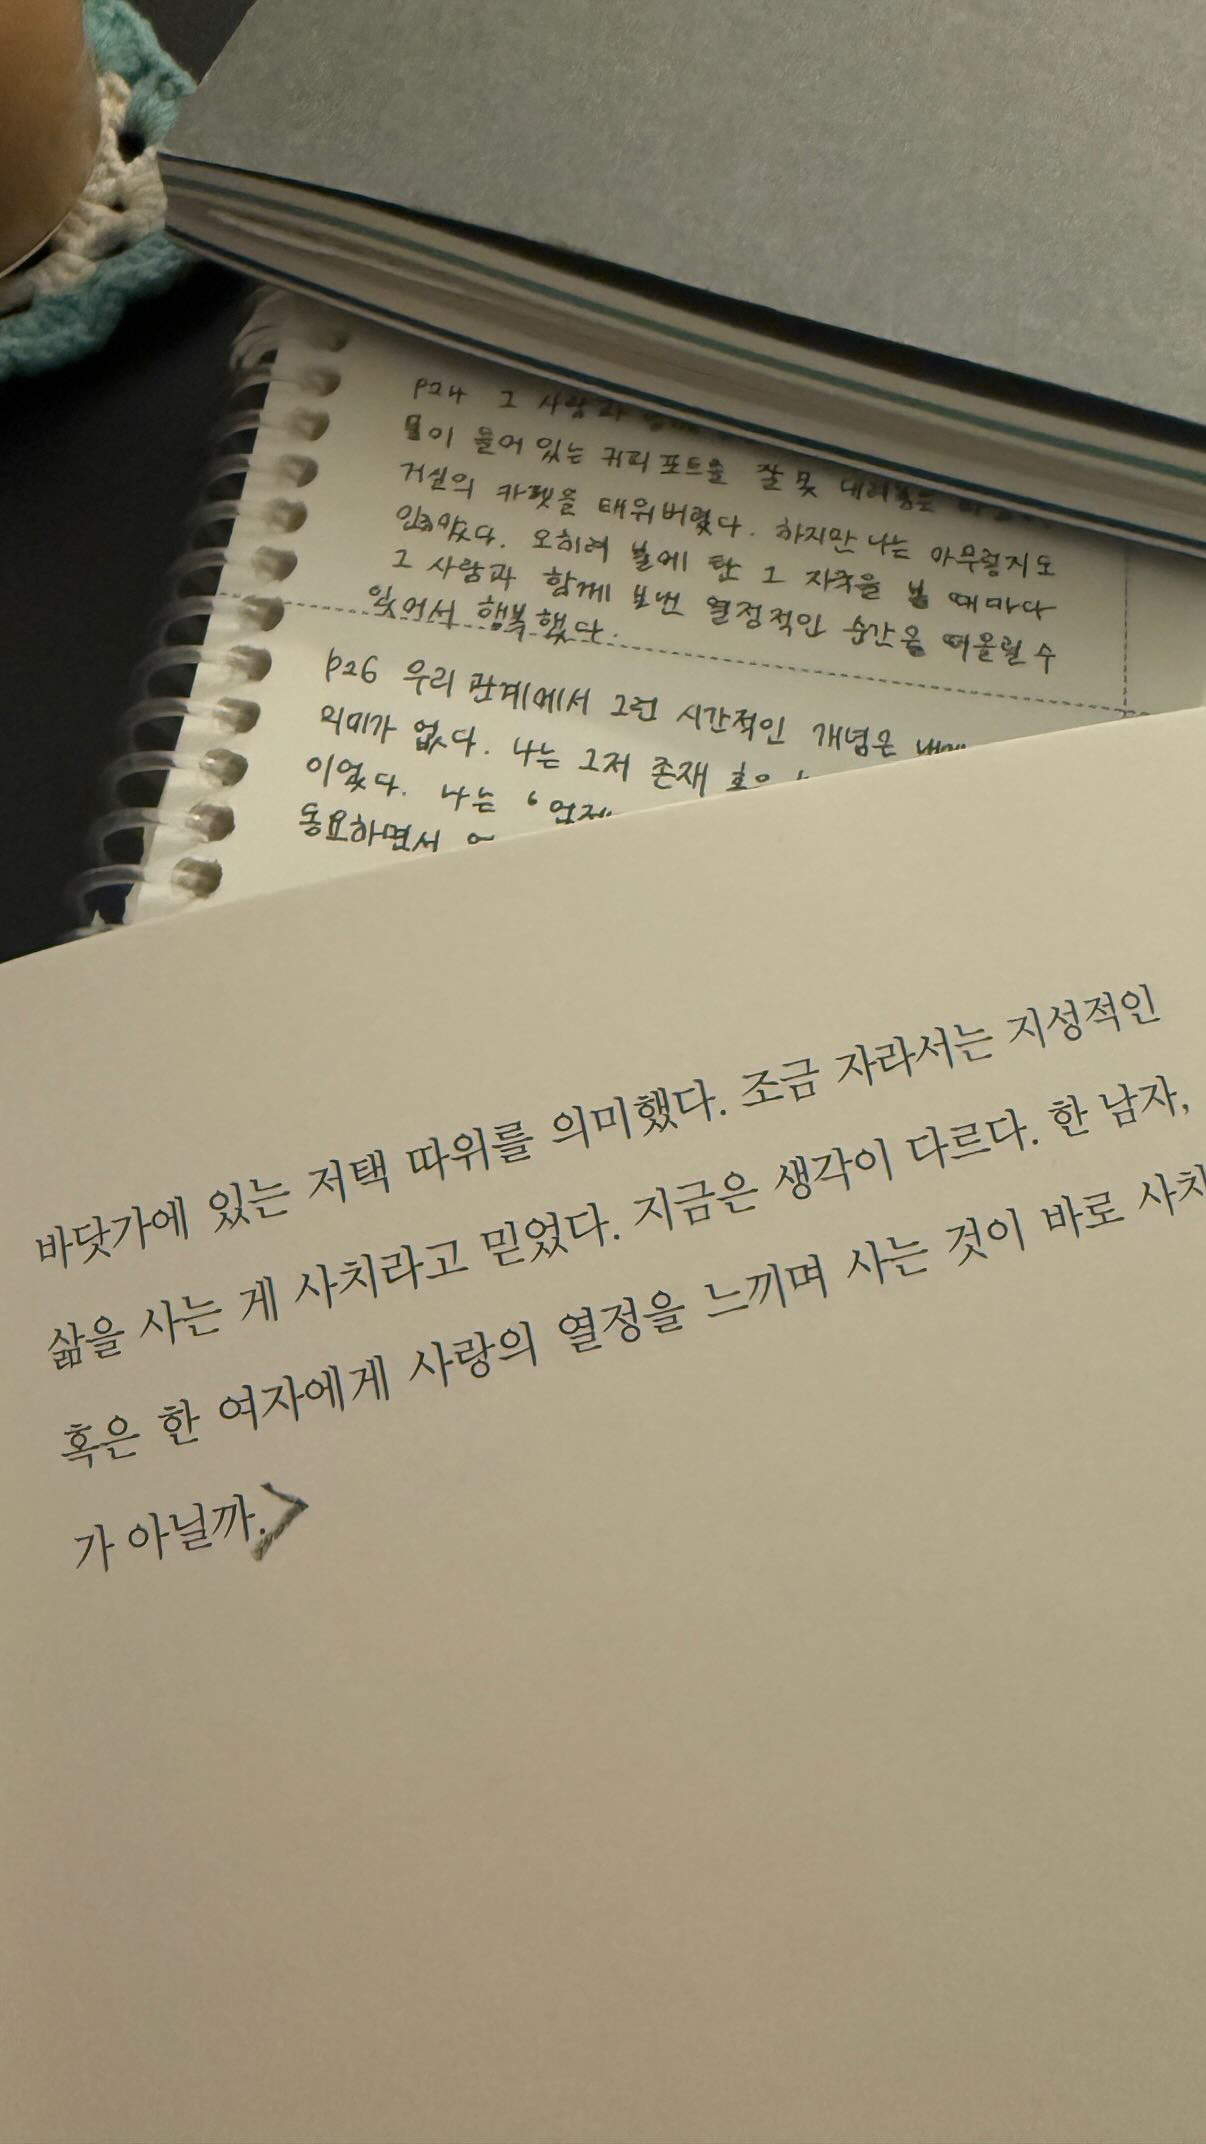 p24 그 사람과
물이 들어 있는 커피포트를 잘못
거실의 카펫을 태워버렸다. 하지만 나는 아무렇지도
않았다. 오히려 불에 탄 그 자국을 볼 때마다
그 사람과 함께 보낸 열정적인 순간을 떠올릴 수
있어서 행복했다.
p26 우리 관계에서 그런 시간적인 개념은
의미가 없다. 나는 그저 존재 혹은
이었다. 나는 '언제
동요하면서
바닷가에 있는 저택 따위를 의미했다. 조금 자라서는 지성적인
삶을 사는 게 사치라고 믿었다. 지금은 생각이 다르다. 한 남자,
혹은 한 여자에게 사랑의 열정을 느끼며 사는 것이 바로 사치
가 아닐까.